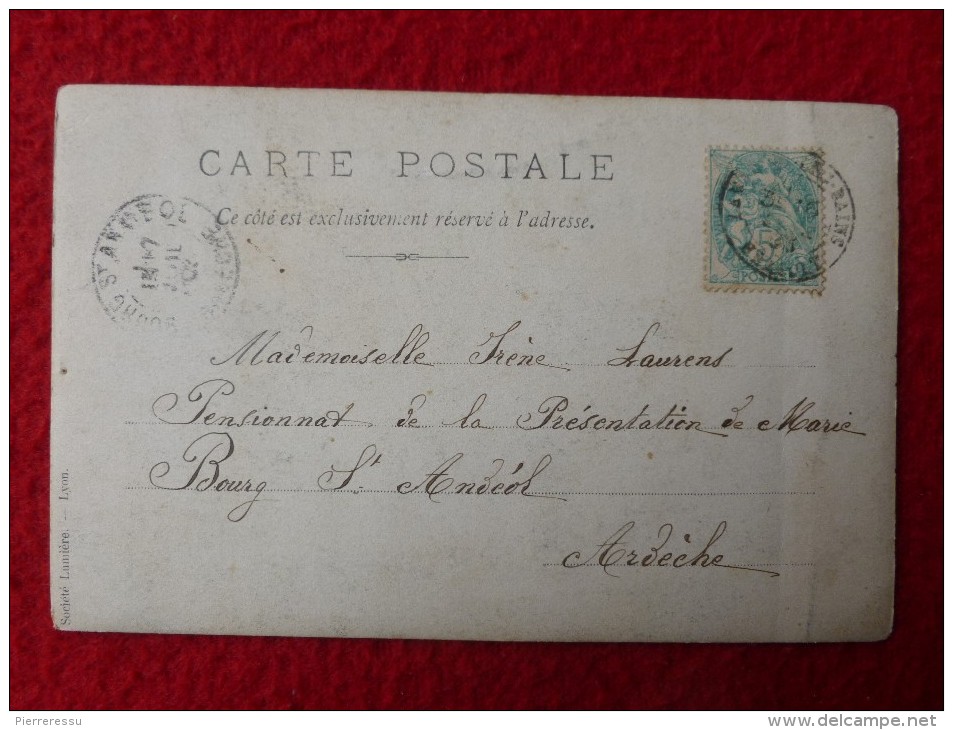 CARTE POSTALE
Ce côté est exclusivement réservé à l'adresse.
BOURG ST ANDEOL
5
Mademoiselle Irène Laurens
Pensionnat de la Présentation de Marie
Bourg St Andéol
Ardèche
Société Lumière. — Lyon.
Pierreressu
www.delcampe.net